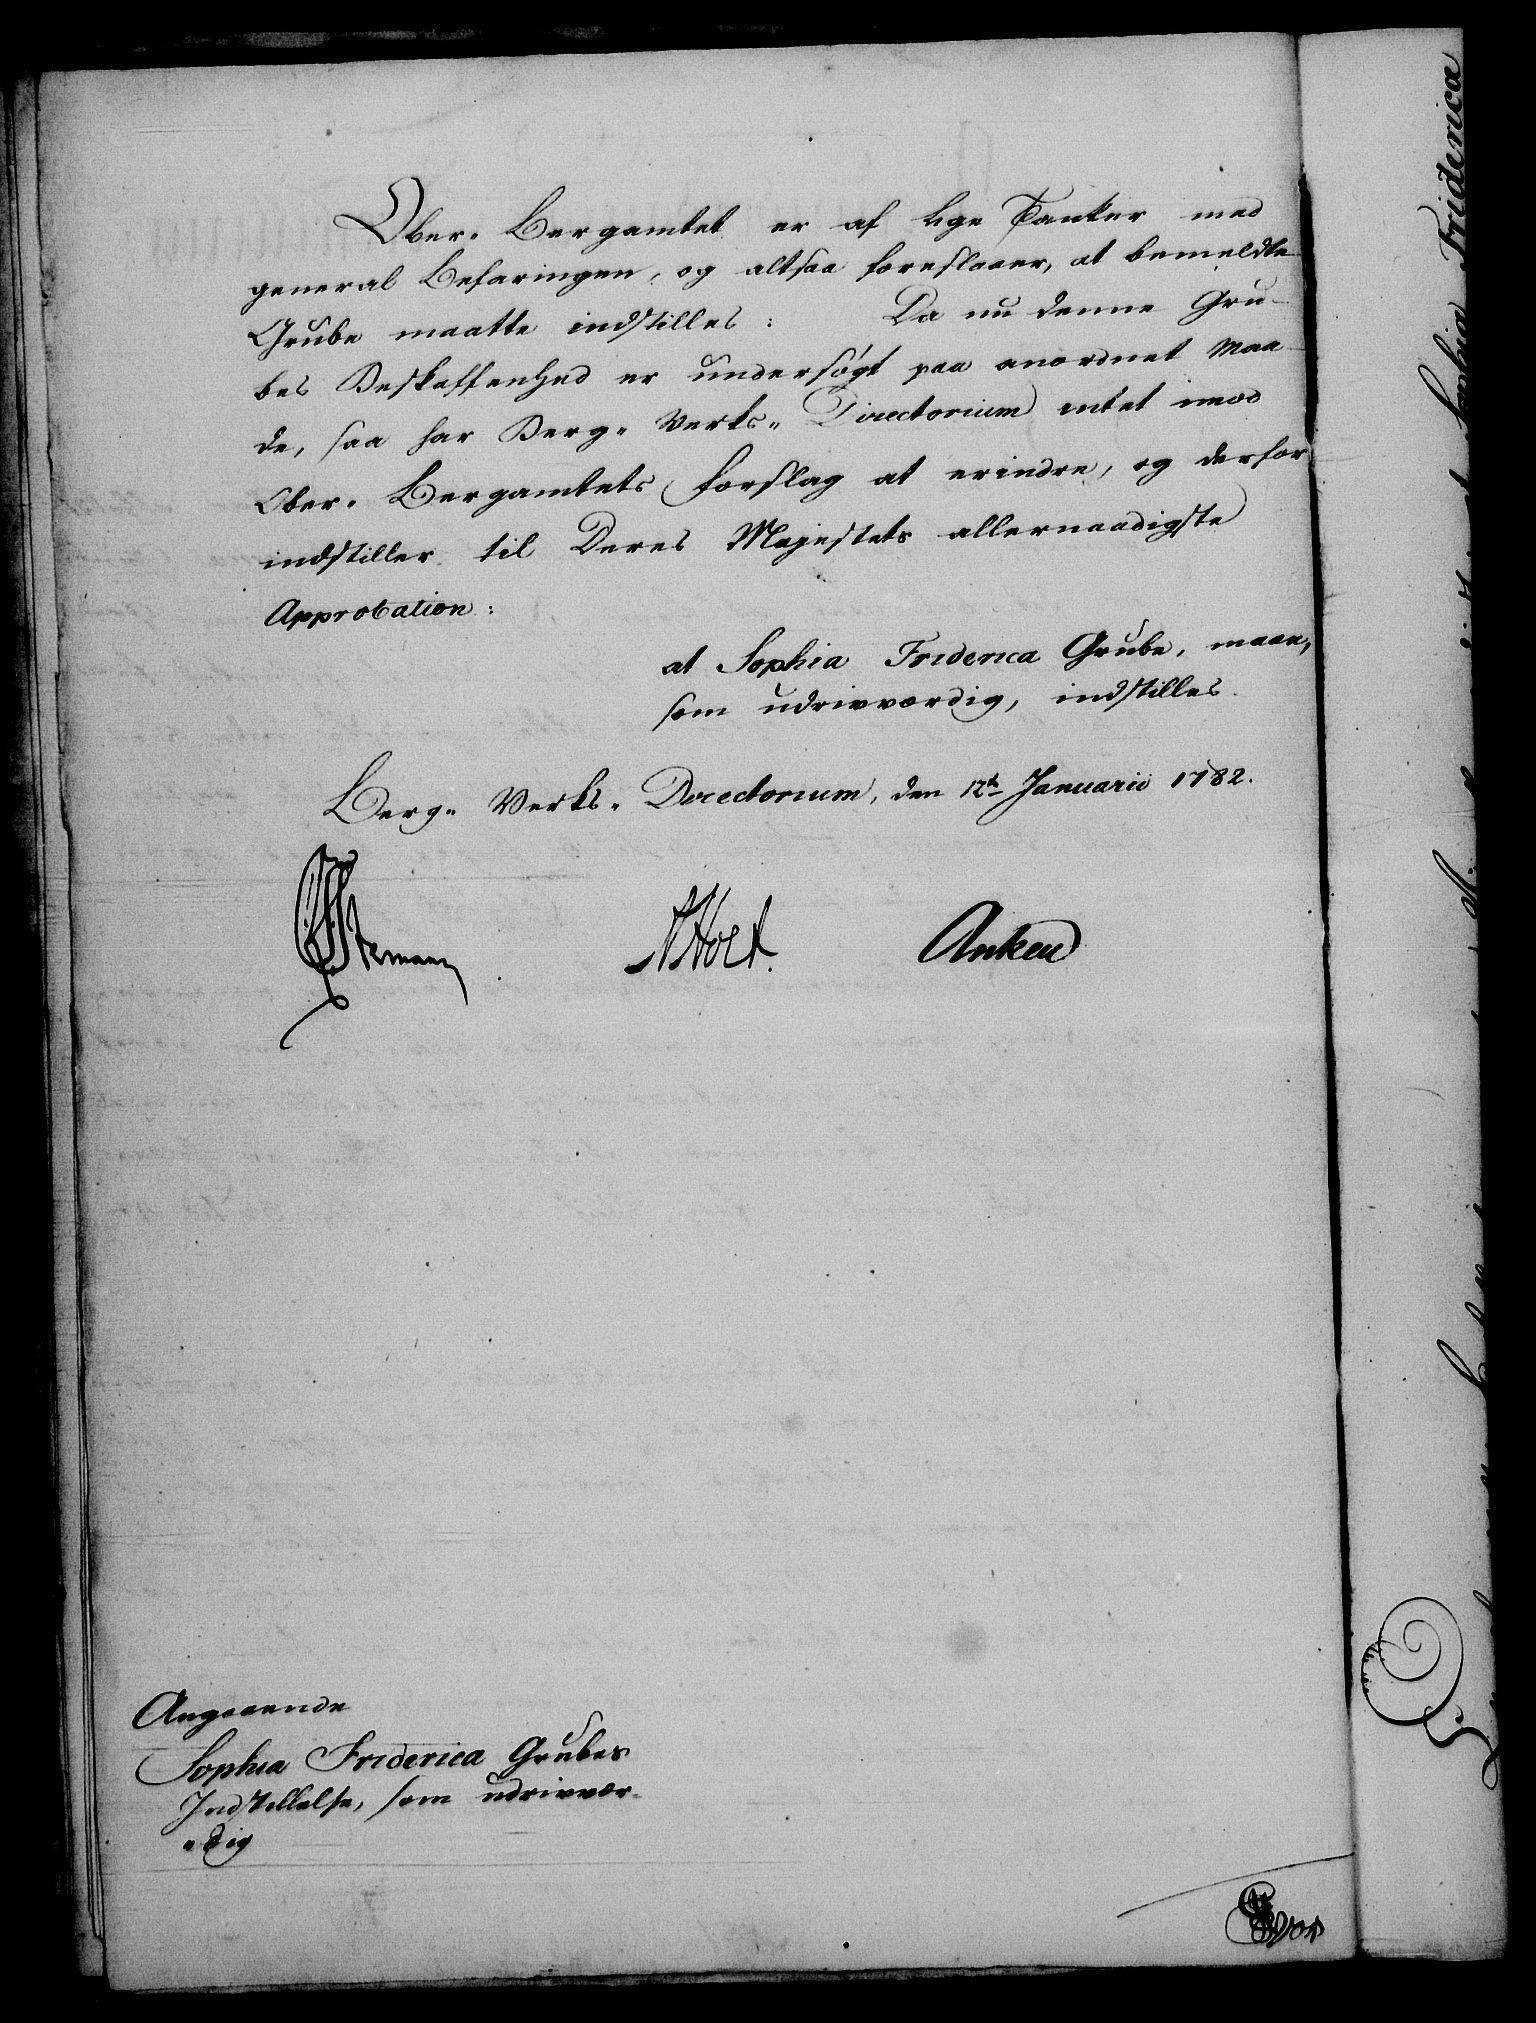 Ober- Bergamtet er af lige Tanker med
general Befaringen, og altsaa foreslaaer, at bemeldte
Grube maatte indstilles: Da nu denne Gru-
bes Beskaffenhed er undersøgt paa anordnet Maa-
de, saa har Berg- Verks- Directorium intet imod
Ober- Bergamtets Forslag at erindre, og derfor
indstiller til Deres Majestets allernaadigste
Approbation:
at Sophia Friderica Grube, maae,
som udrivværdig, indstilles.
Berg- Verks- Directorium, den 12te Januarii 1782.
Stemann
Holt.
Anker
Angaaende
Sophia Friderica Grubes
Indstillelse, som udrivvær-
-dig
Sophia Friderica